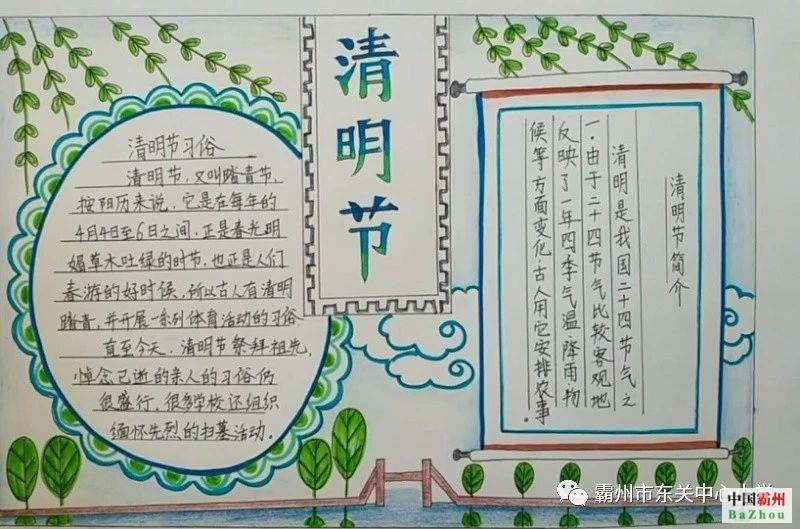 清明节
清明节习俗
清明节，又叫踏青节，
按阳历来说，它是在每年的
4月4日至6日之间，正是春光明
媚草木吐绿的时节，也正是人们
春游的好时候，所以古人有清明
踏青，并开展一系列体育活动的习俗。
直至今天，清明节祭拜祖先，
悼念已逝的亲人的习俗仍
很盛行，很多学校还组织
缅怀先烈的扫墓活动。
清明节简介
清明是我国二十四节气之
一，由于二十四节气比较客观地
反映了一年四季气温降雨物
候等方面变化，古人用它安排农事。
霸州市东关中心小学
中国霸州
BaZhou